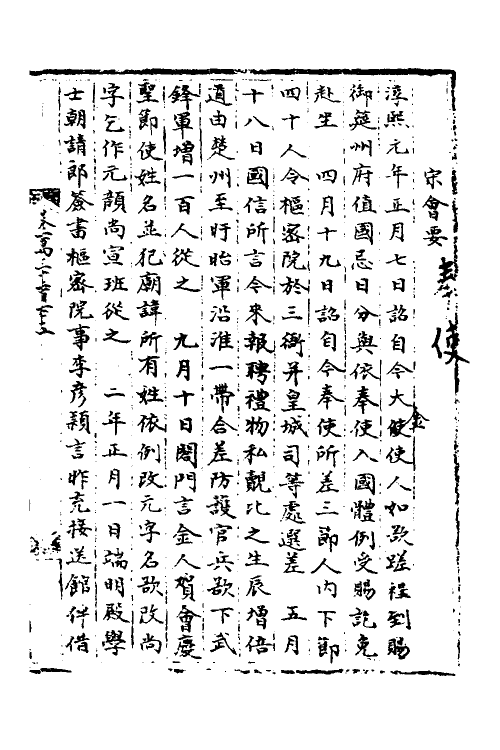 宋會要 奉使
淳熙元年正月七日詔自今大使使人如欲蹉程到賜
金
御筵州府值國忌日分與依奉使入國體例受賜訖免
赴坐 四月十九日詔自今奉使所差三節人內下節
四十人令樞密院於三衙并皇城司等處選差 五月
十八日國信所言今來報聘禮物私覿比之生辰增倍
道由楚州至盱眙軍沿淮一帶合差防護官兵欲下武
鋒軍增一百人從之 九月十日閤門言金人賀會慶
聖節使姓名並犯廟諱所有姓依例改元字名欲改尚
字乞作元顏尚宣班從之 二年正月一日端明殿學
士朝請郎簽書樞密院事李彥穎言昨充接送館伴借